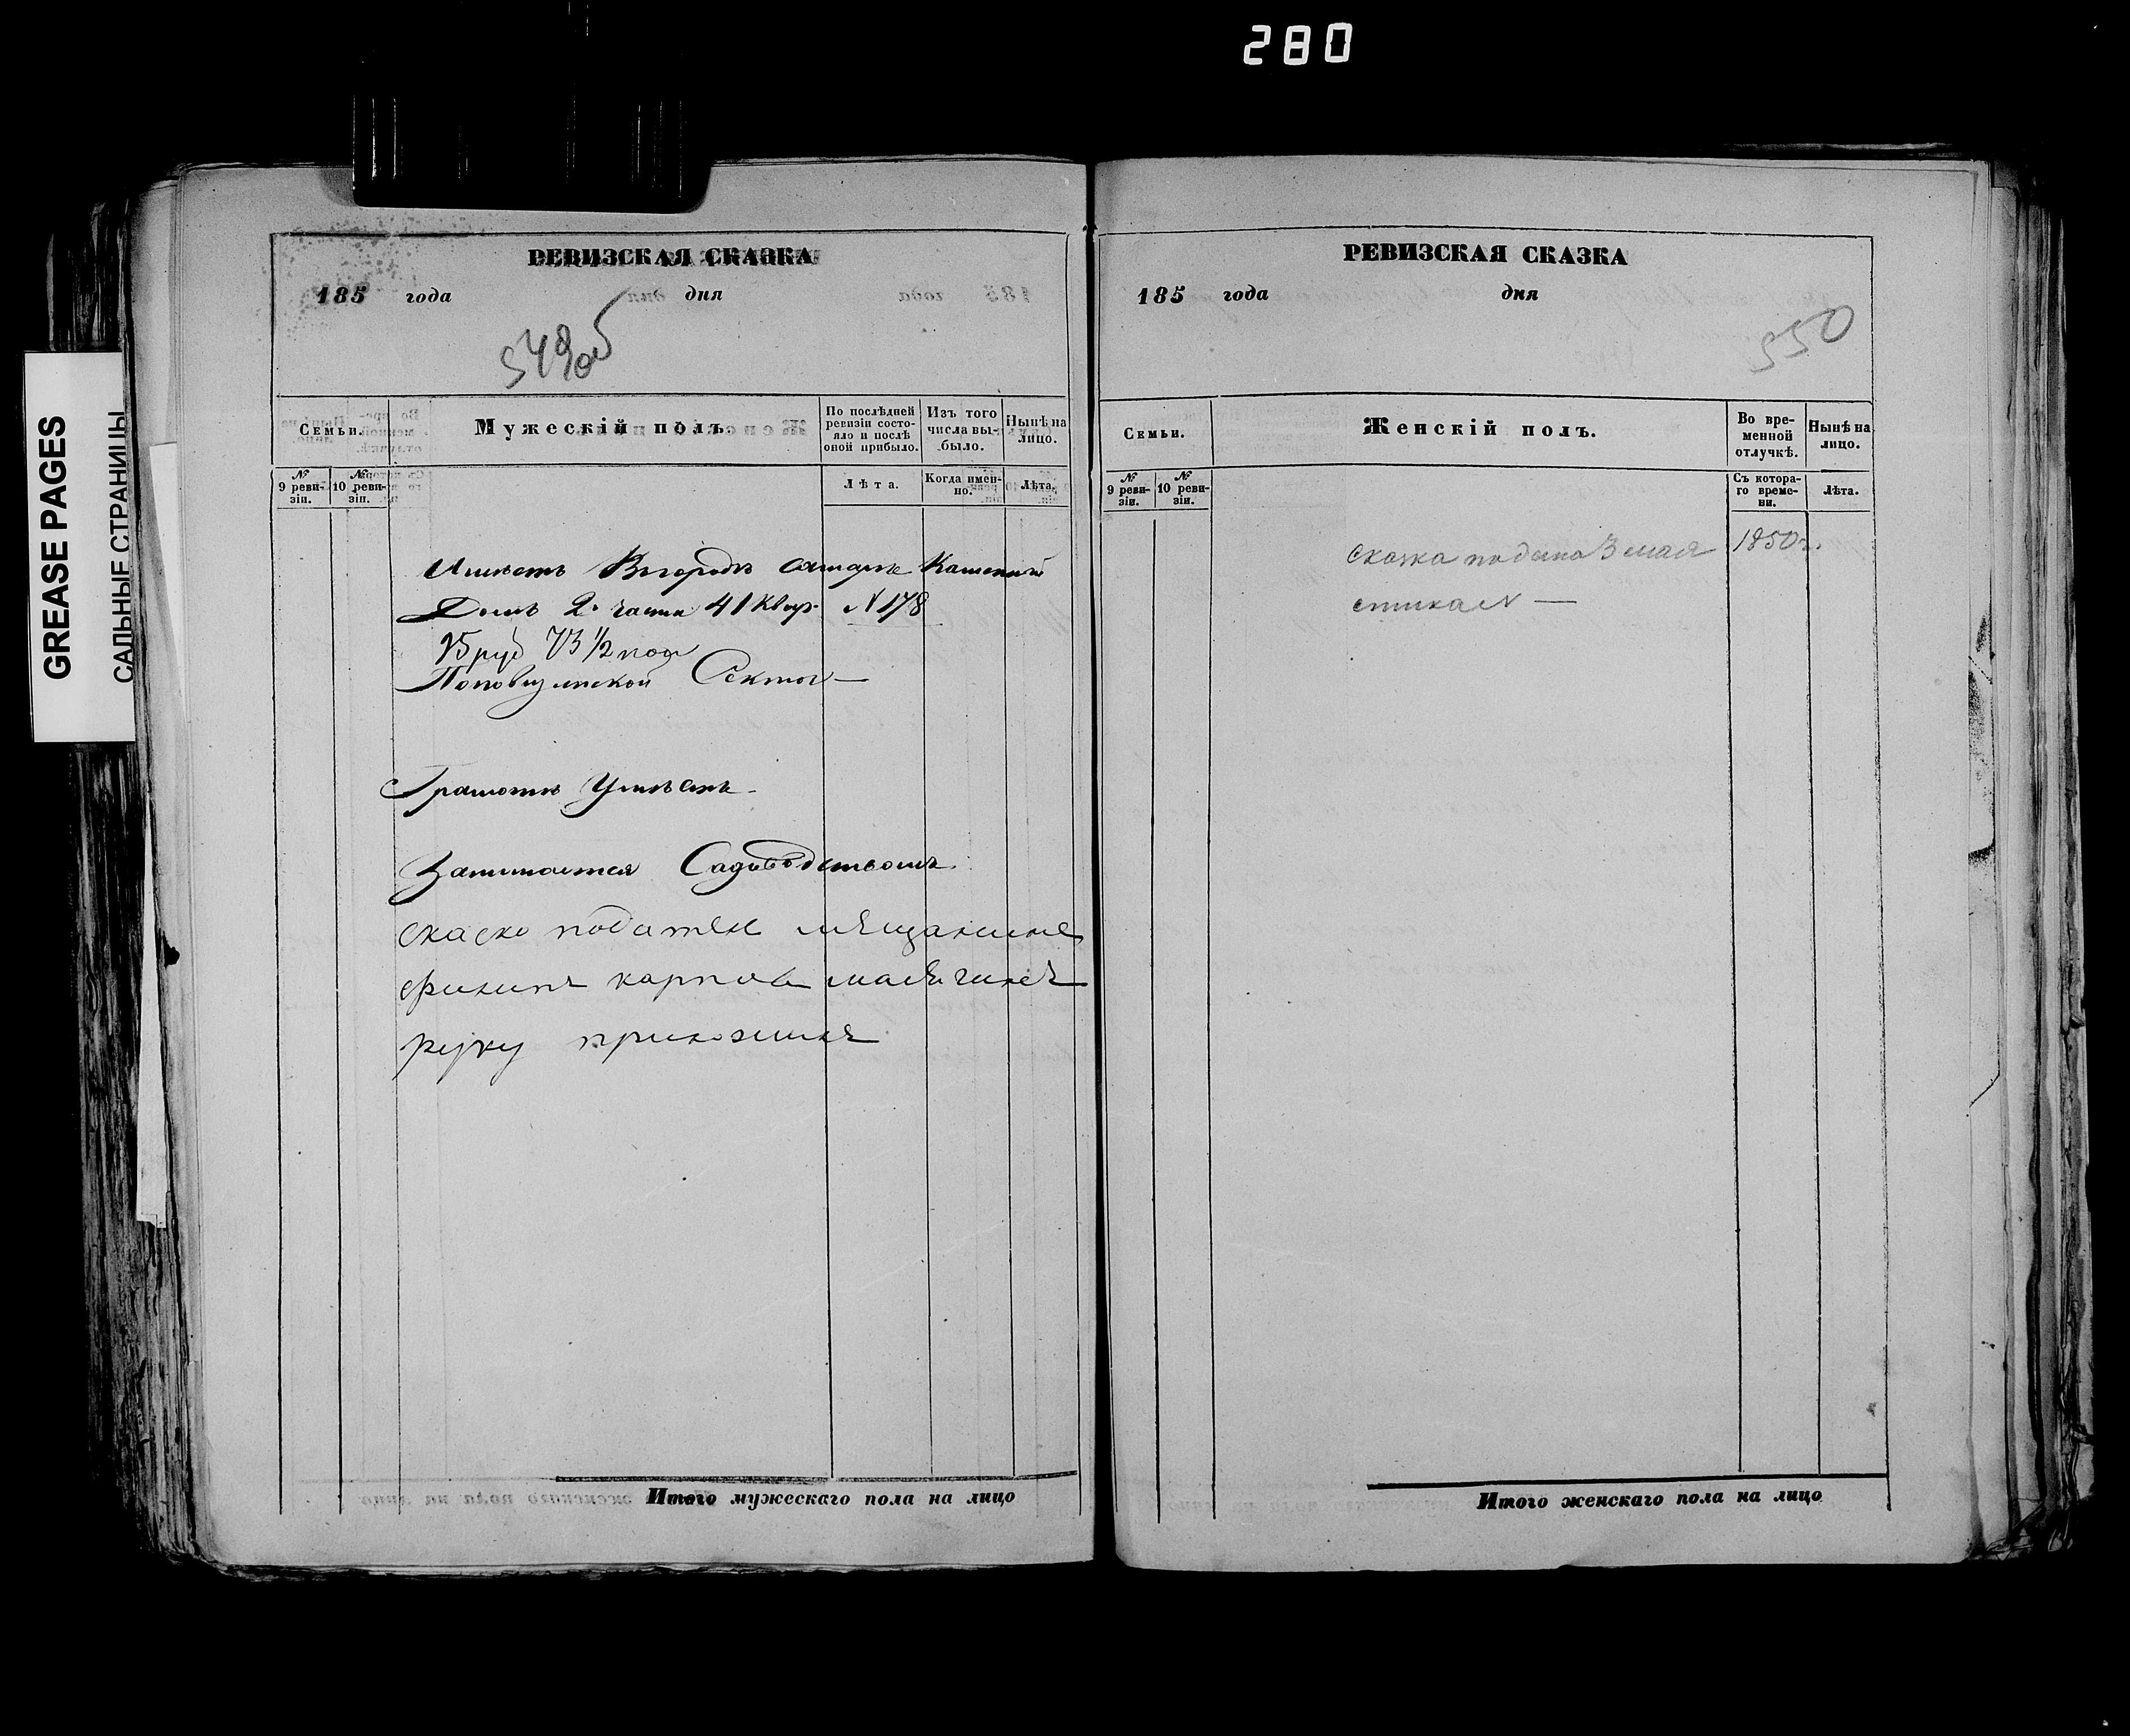 280
GREASE PAGES
САЛЬНЫЕ СТРАНИЦЫ
РЕВИЗСКАЯ СКАЗКА
185 года дня
549об
Семьи.
Мужескій полъ.
По послѣдней ревизіи состояло и послѣ оной прибыло.
Изъ того числа выбыло.
Нынѣ на лицо.
№ 9 ревизіи.
№ 10 ревизіи.
Лѣта.
Когда именно.
Лѣта.
Имѣетъ Вгородѣ Каменный
Домъ 2й части 41 Квар. N 178
руб 1/2 коп
Секты
Грамотѣ Умѣетъ
Занимается Садоводствомъ
мещанине
филипъ карпов
руку приложилъ
Итого мужескаго пола на лицо
РЕВИЗСКАЯ СКАЗКА
185 года дня
550
Семьи.
Женскій полъ.
Во временной отлучкѣ.
Нынѣ на лицо.
№ 9 ревизіи.
№ 10 ревизіи.
Съ котораго времени.
Лѣта.
Сказка подана 3 мая 1850 г.
Итого женскаго пола на лицо